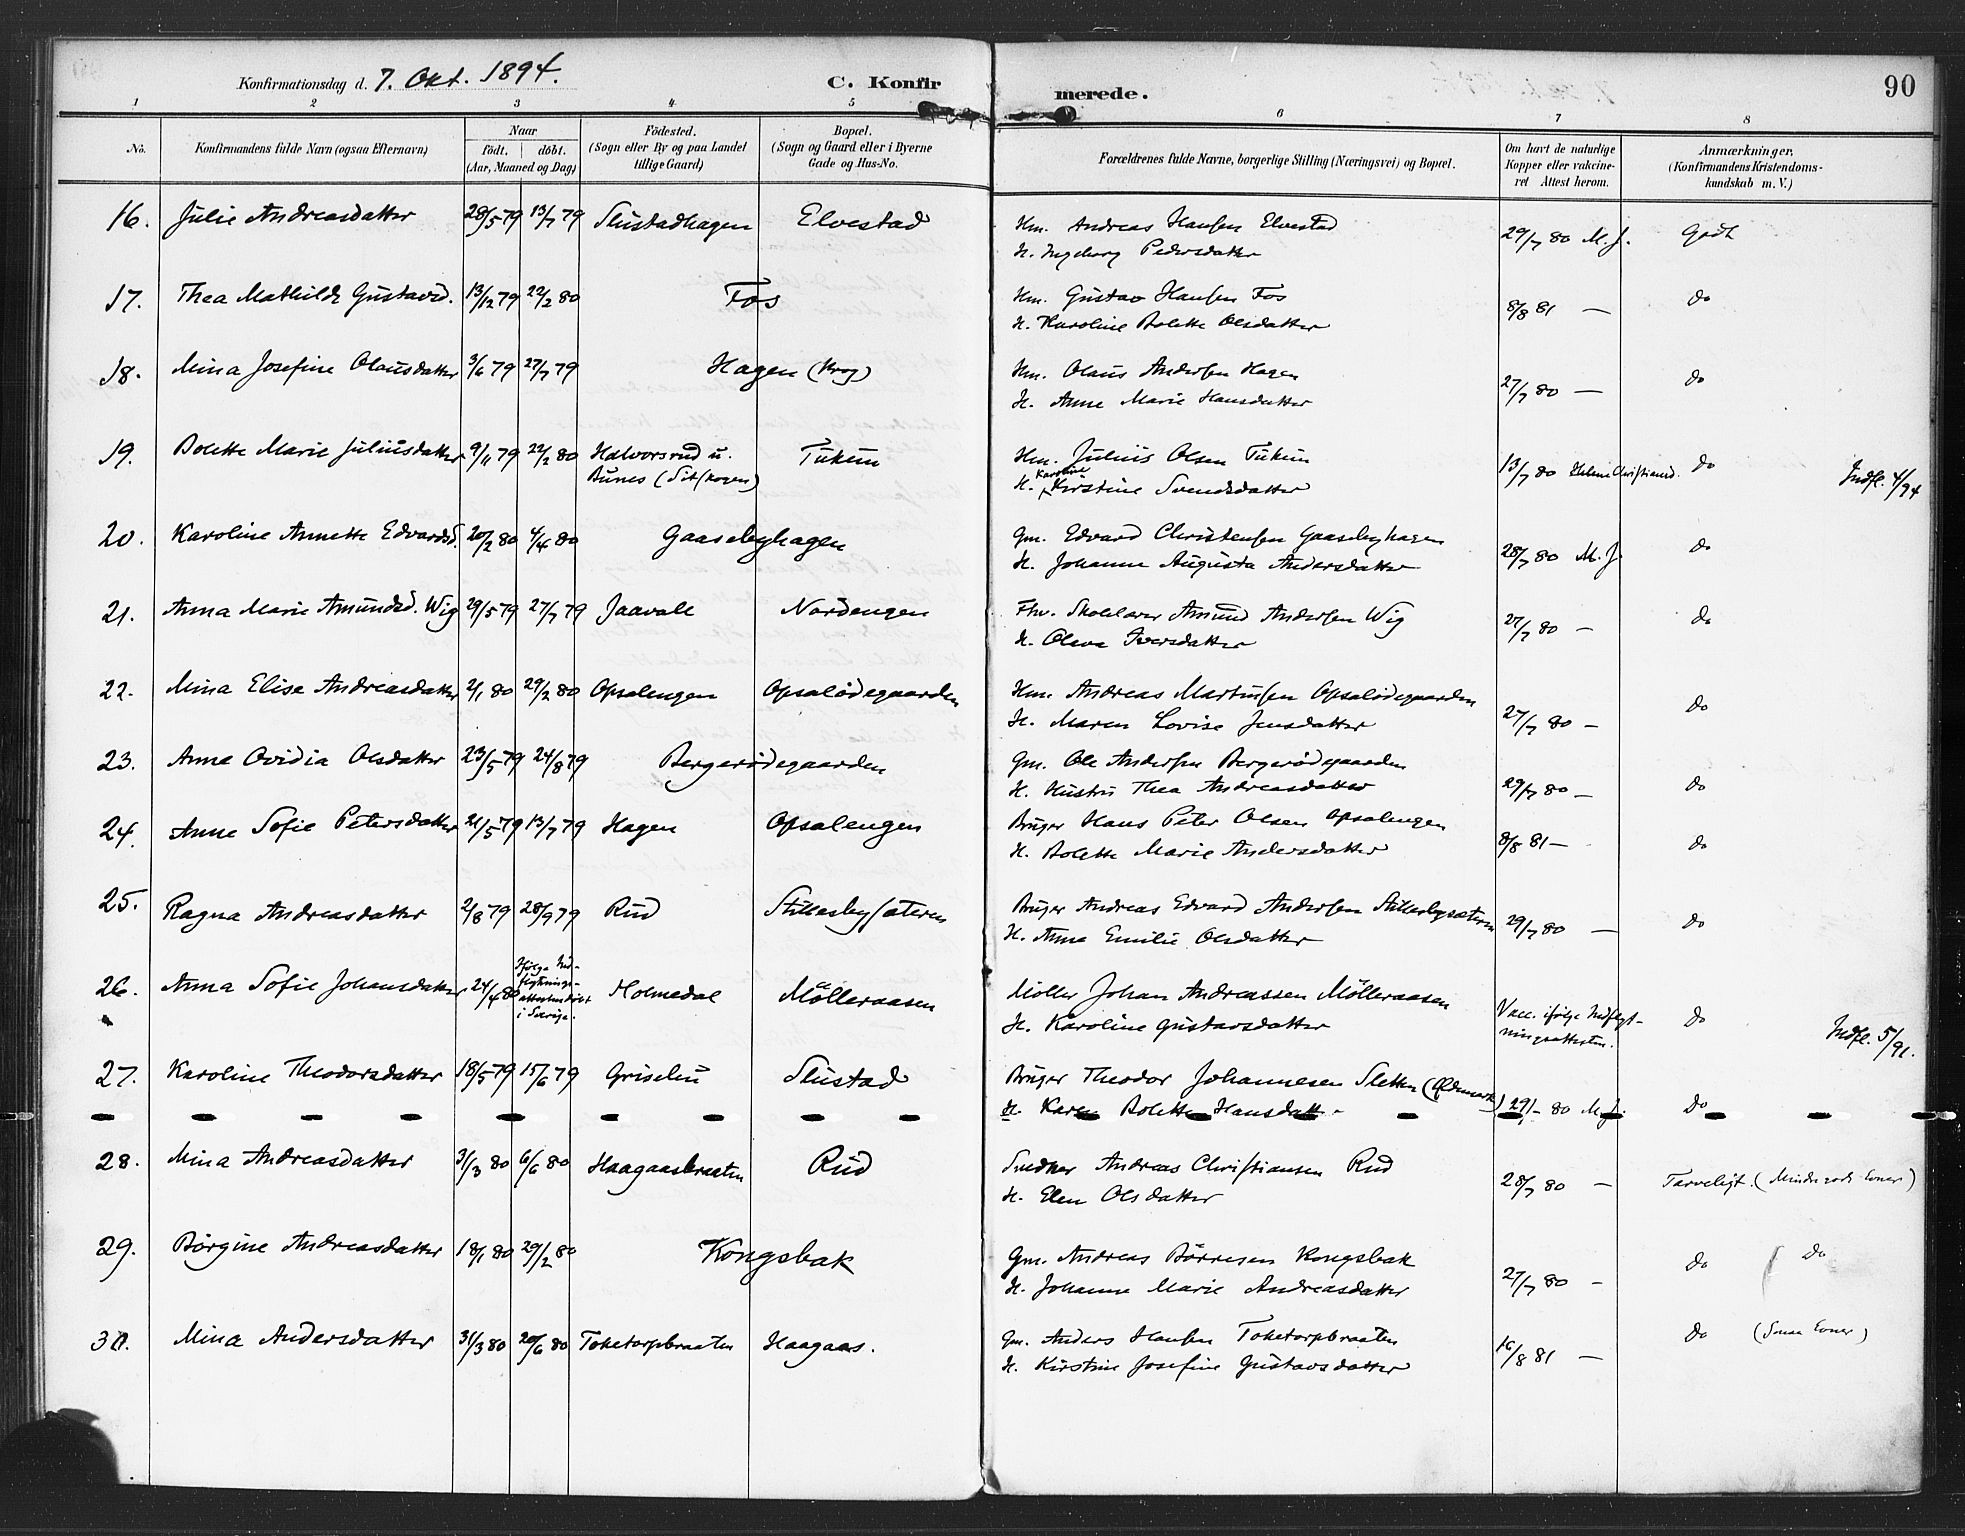 Konfirmationsdag d. 7. Okt. 1894.
C. Konfir
merede.
90
1 2 3 4 5 6 7 8
No.
Konfirmandens fulde Navn (ogsaa Efternavn)
Naar
födt. döbt.
(Aar, Maaned og Dag)
Födested.
(Sogn eller By og paa Landet
tillige Gaard)
Bopæl.
(Sogn og Gaard eller i Byerne
Gade og Hus-No.
Forældrenes fulde Navne, borgerlige Stilling (Næringsvei) og Bopæl.
Om havt de naturlige
Kopper eller vakcine-
ret Attest herom.
Anmærkninger.
(Konfirmandens Kristendoms-
kundskab m. V.)
16. Julie Andreasdatter 28/5 79 13/7 79 Slustadhagen Elvestad Hm. Andreas Hansen Elvestad 29/7 80 M. J. Godt
H. Ingeborg Pedersdatter
17. Thea Mathilde Gustavsd. 13/12 79 22/2 80 Fos Hm. Gustav Hansen Fos 8/8 81 — do
H. Karoline Bolette Olsdatter
18. Mina Josefine Olausdatter 3/6 79 27/7 79 Hagen (Krog) Hm. Olaus Andersen Hagen 27/7 80 — do
H. Anne Marie Hansdatter
19. Bolette Marie Juliusdatter 9/11 79 22/2 80 Halvorsrud u. Tukun Hm. Julius Olsen Tukun 13/7 80 Helene Christiansd. do Indfl. 4/94
Bunes (Sit/kogen) H. Karoline Kirstine Svendsdatter
20. Karoline Annette Edvardsd. 20/2 80 4/4 80 Gaasebyhagen Gm. Edvard Christensen Gaasebyhagen 28/7 80 M. J. do
H. Johanne Augusta Andersdatter
21. Anna Marie Amundsd. Wig 29/5 79 27/7 79 Jaavall Nordengen Fhv. Skolelærer Amund Andersen Wig 27/7 80 — do
H. Oleva Iversdatter
22. Mina Elise Andreasdatter 2/1 80 29/2 80 Opsalengen Opsalödegaarden Hm. Andreas Martinsen Opsalödegaarden 27/7 80 — do
H. Maren Lovise Jensdatter
23. Anne Ovidia Olsdatter 23/5 79 24/8 79 Bergerödegaarden Gm. Ole Andersen Bergerödegaarden 29/7 80 — do
H. Hustru Thea Andreasdatter
24. Anne Sofie Petersdatter 21/5 79 13/7 79 Hagen Opsalengen Bruger Hans Peter Olsen Opsalengen 8/8 81 — do
H. Bolette Marie Andersdatter
25. Ragna Andreasdatter 2/8 79 28/9 79 Rud Stikkesbysæteren Bruger Andreas Edvard Andersen Stikkesbysæteren 29/7 80 — do
H. Anne Emilie Olsdatter
26. Anna Sofie Johansdatter 24/4 80 Ifølge Ind-
flytnings-
attesten døbt
i Sverige. Holmedal Mölleraasen Möller Johan Andreassen Mölleraasen Vacc. ifølge Indflyt-
ningsattesten. do Indfl. 5/91.
H. Karoline Gustavsdatter
27. Karoline Theodorsdatter 18/5 79 15/6 79 Griselu Slustad Bruger Theodor Johannesen Sletten (Ödemark) 29/7 80 M. J. do
H. Karen Bolette Hansdatt.
28. Mina Andreasdatter 31/3 80 6/6 80 Haagaasbraaten Rud Snedker Andreas Christiansen Rud 28/7 80 — Tarveligt. (Mindre gode Evner)
H. Elen Olsdatter
29. Børgine Andreasdatter 18/1 80 29/2 80 Kongsbak Gm. Andreas Børresen Kongsbak 27/7 80 — do do
H. Johanne Marie Andreasdatter
30. Mina Andersdatter 31/3 80 20/6 80 Toketorpbraaten Haagaas. Gm. Anders Hansen Toketorpbraaten 16/8 81 — do (Smaa Evner)
H. Kirstine Josefine Gustavsdatter